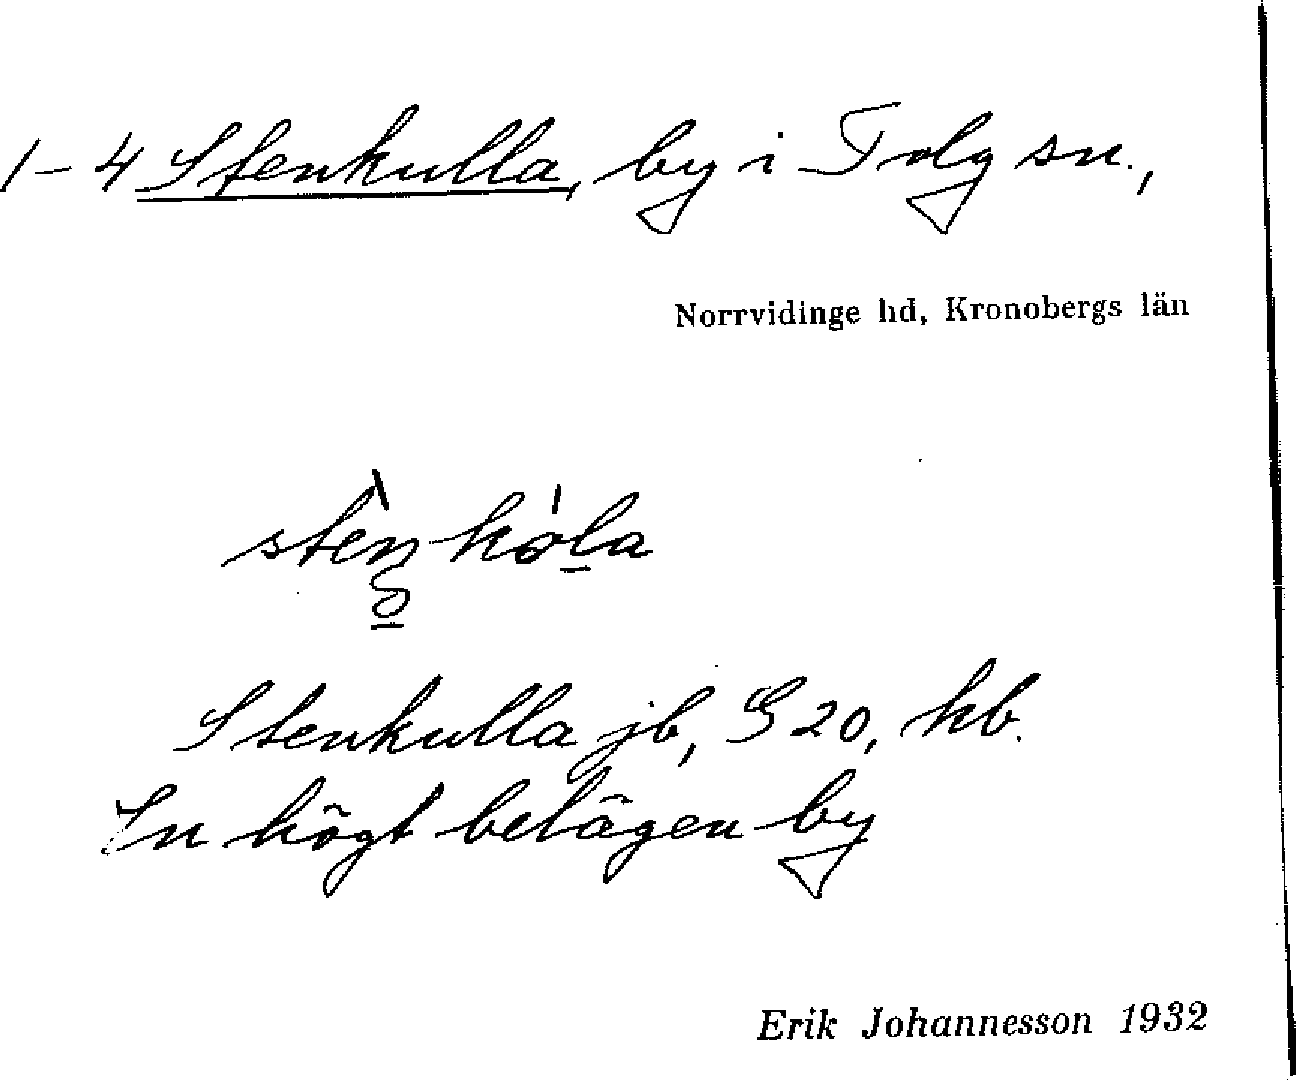 1-4 Stenkulla, by i Tolg sn.,
Norrvidinge hd, Kronobergs län
Stenkulla jb, G 20, hb.
En högt belägen by
Erik Johannesson 1932